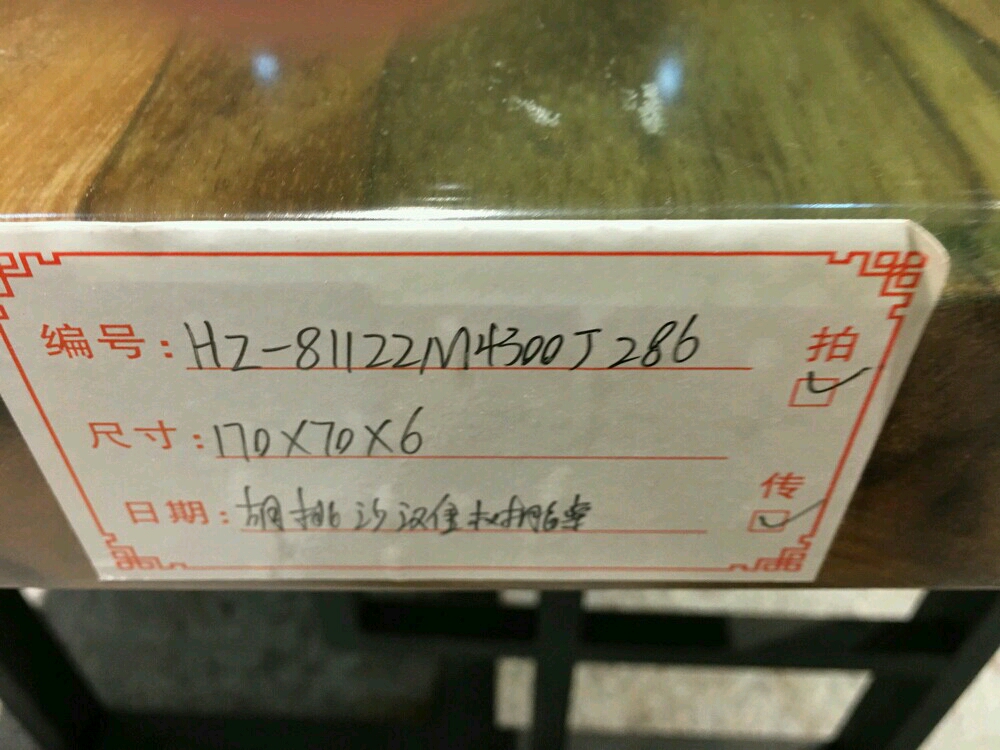 编号: HZ-81122M4300J286
尺寸: 170X70X6
日期: 胡桃
拍
传